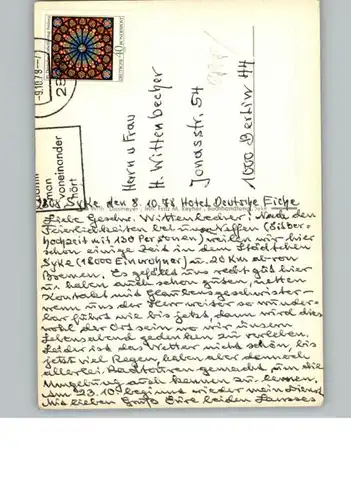 -9.10.78-
DEUTSCHE BUNDESPOST
40
man
voneinander
hört
Herrn u Frau
H. Wittenbecher
Jonasstr. 54
1000 Berlin 44
2808 Syke, den 8.10.78 Hotel Deutsche Eiche
Liebe Geschw. Wittenbecher! Nach den
Feierlichkeiten bei uns. Neffen (Silber-
hochzeit mit 130 Personen) weilen wir hier
schon einige Zeit in dem Städtchen
Syke (18000 Einwohner) u. 20 Km ab von
Bremen. Es gefällt uns recht gut hier
u. haben auch schon guten, netten
Kontakt mit Glaubensgeschwister-
wenn uns der Herr weiter so wunder-
bar führt wie bis jetzt, dann wird dies
wohl der Ort sein wo wir unsern
Lebensabend gedenken zu verleben.
Leider ist das Wetter nicht schön, bis
jetzt viel Regen, haben aber dennoch
allerlei Radtouren gemacht um die
Umgebung auch kennen zu lernen.
Am 23.10. beginnt wieder mein Dienst
Mit lieben Gruß Eure beiden